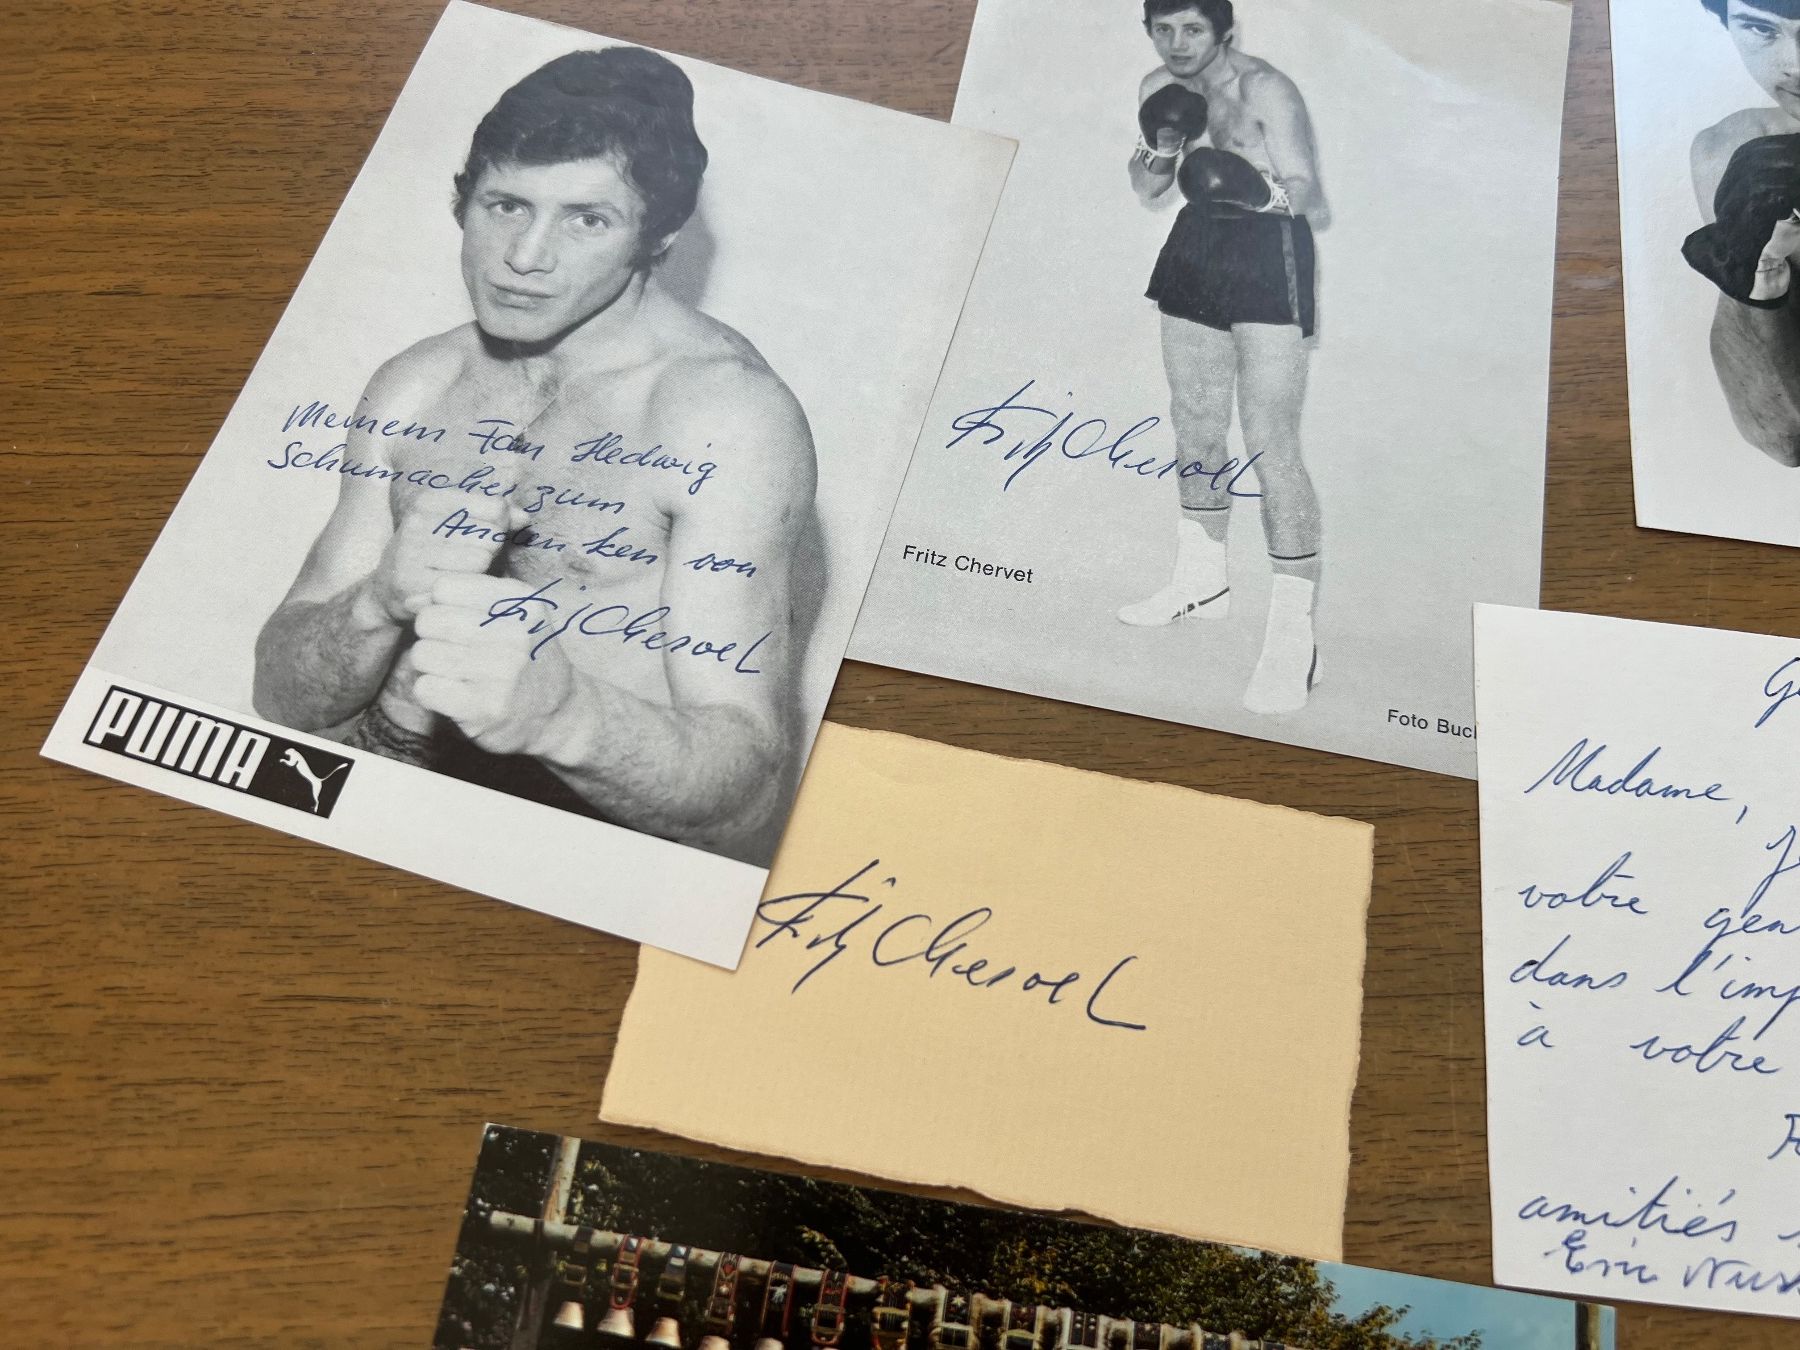 Meinem Fan Hedwig
Schumacher zum
Andenken von
Fritz Chervet
PUMA
Fritz Chervet
Fritz Chervet
Foto Buc
Fritz Chervet
Madame,
votre gen
dans l'imp
à votre
amitiés
Eric